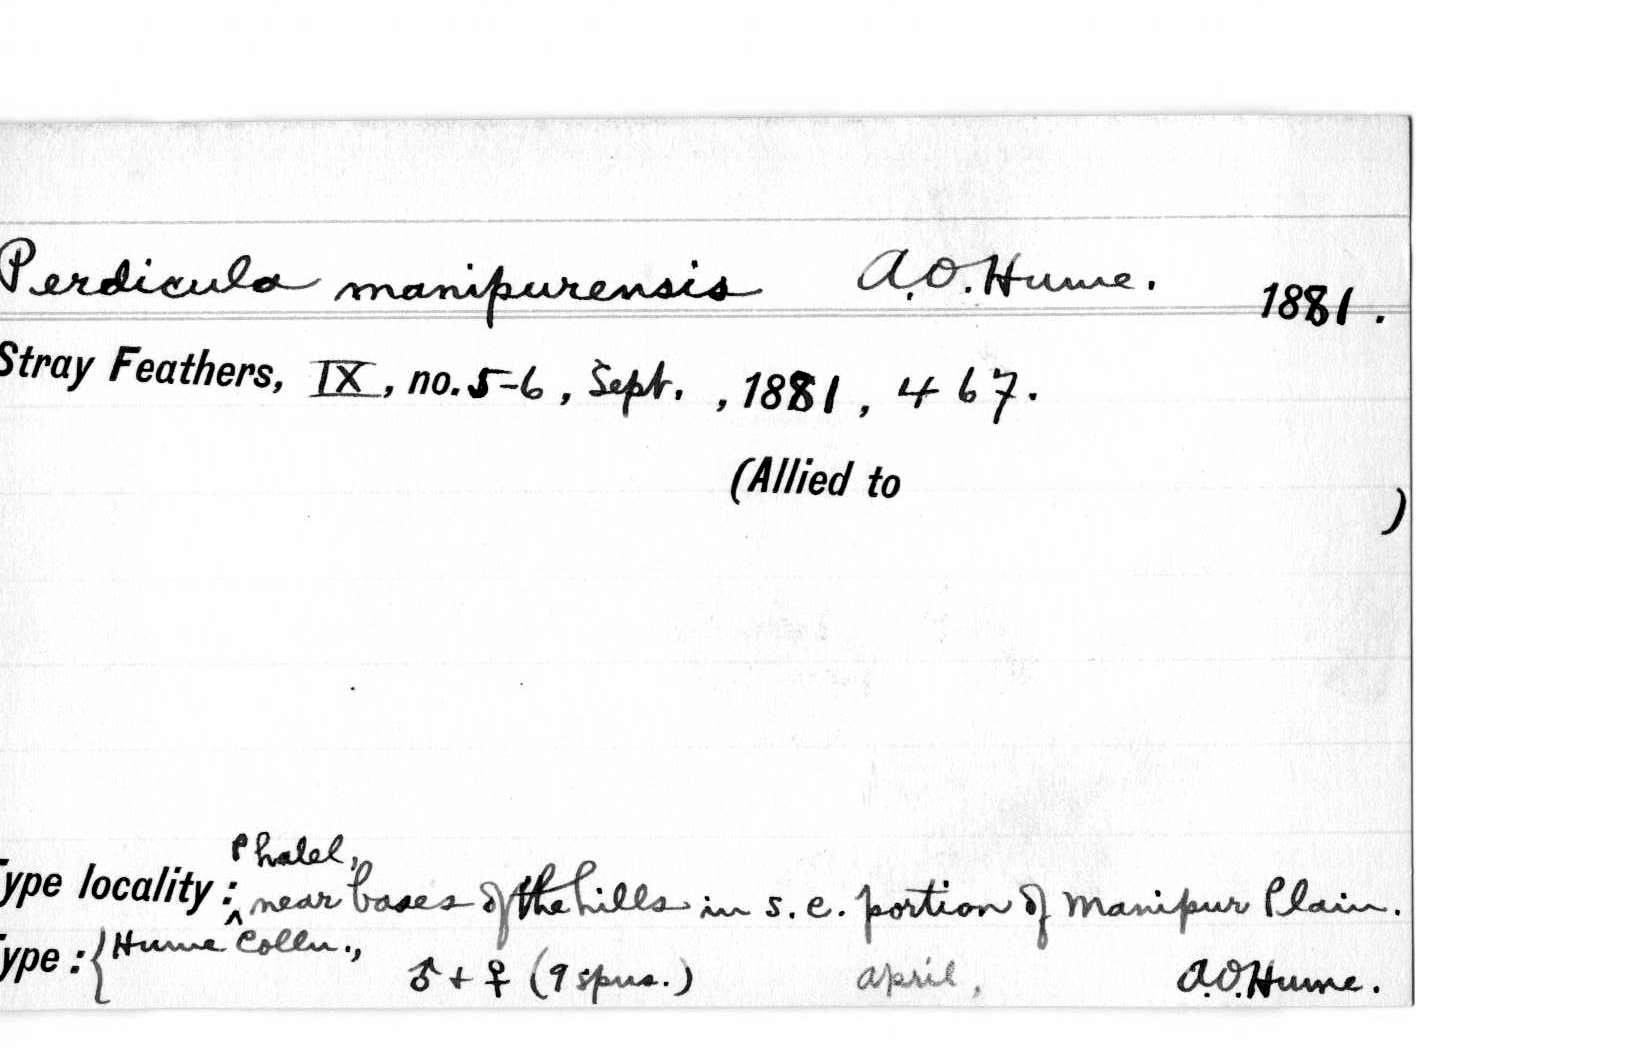 Perdicula manipurensis A.O.Hume. 1881.
Stray Feathers, IX, no. 5-6, Sept., 1881, 467.
(Allied to )
Phalel,
ype locality : ^ near bases of the hills in s.e. portion of Manipur Plain.
ype : { Hume Colln.,
♂ + ♀ (9 spns.) april, A.O.Hume.